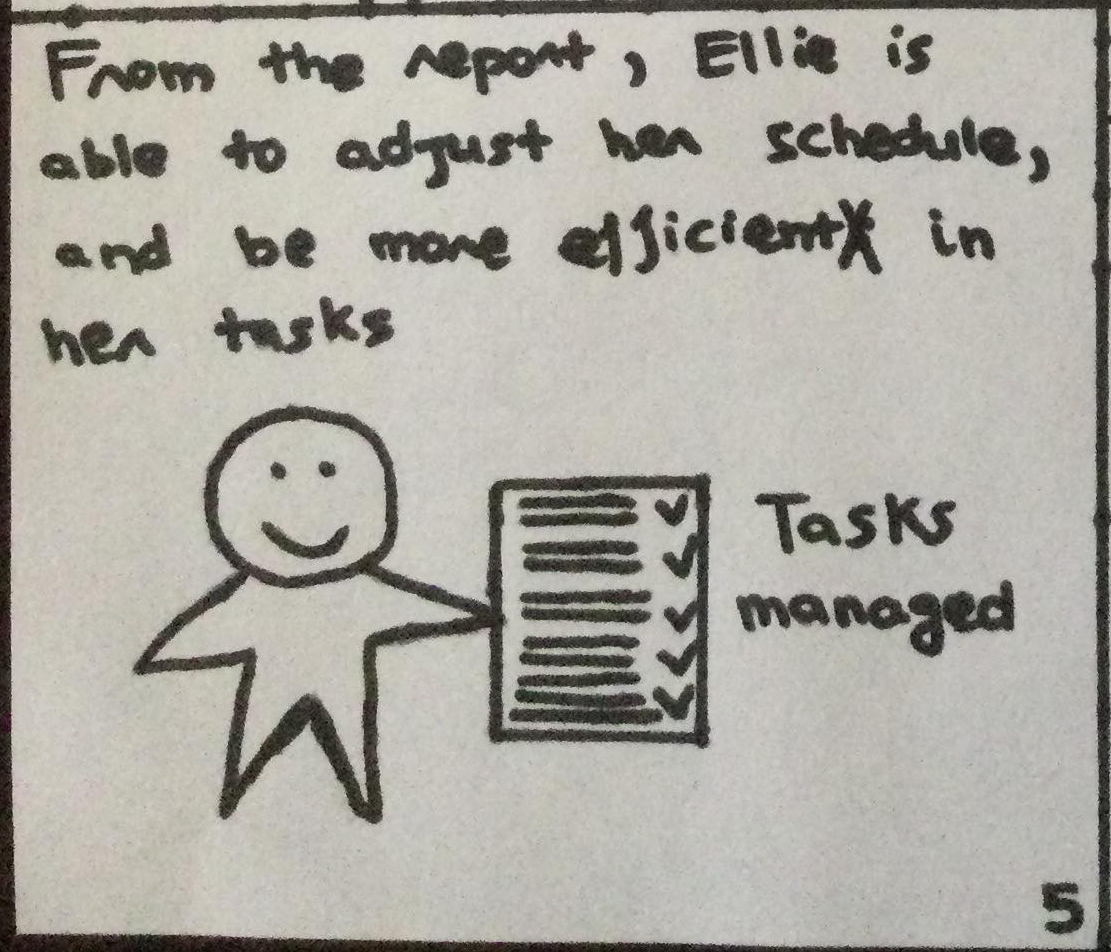 From the report, Ellie is
able to adjust her schedule,
and be more efficient in
her tasks
Tasks
managed
5